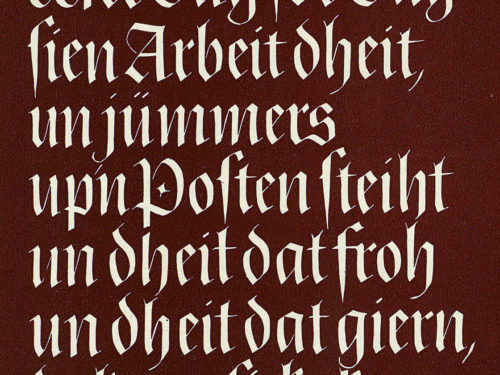 sien Arbeit dheit,
un jümmers
upn Posten steiht
un dheit dat froh
un dheit dat giern,